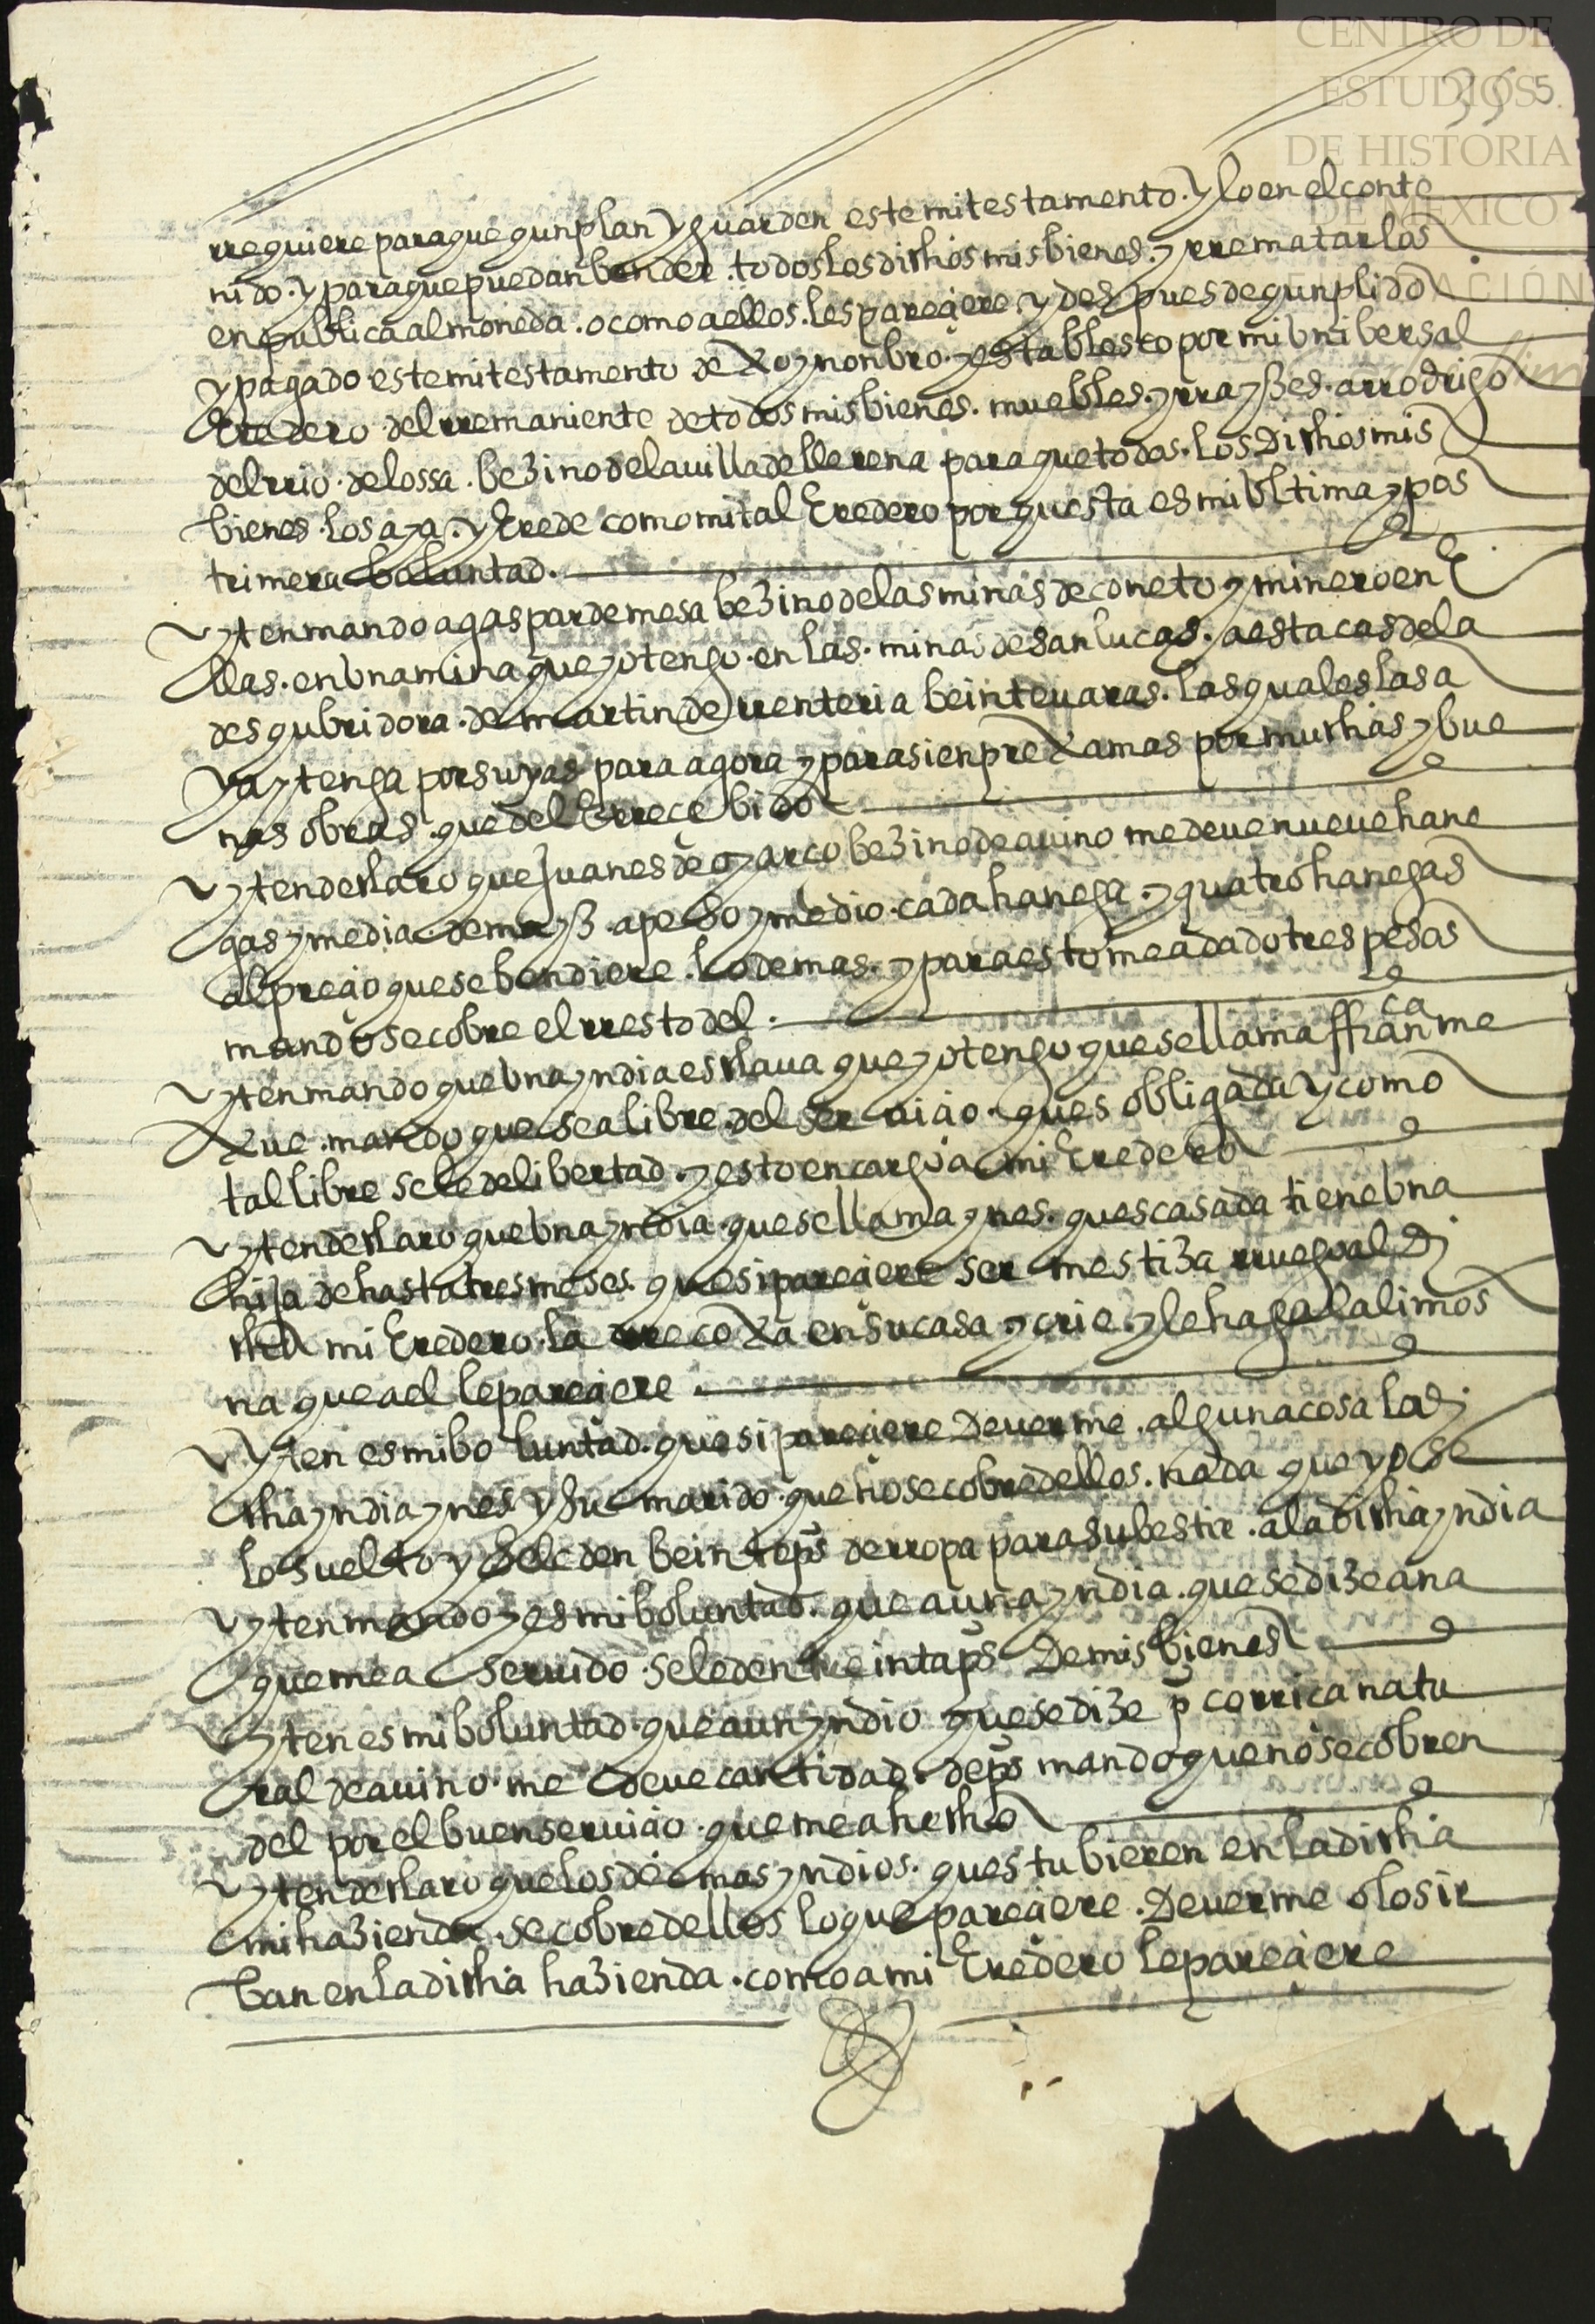 CENTRO DE
ESTUDIOS
DE HISTORIA
DE MÉXICO
FUNDACIÓN
5
rrequiere para que qunplan y guarden este mi testamento. y lo en el conte
nido. y para que puedan bender. todos los dichos mis bienes. y rrematarlos
en publica almoneda. o como a ellos. les pareçiere. y despues de qunplido
y pagado este mi testamento dexo y nonbro. y establesco por mi vnibersal
Eredero del rremaniente de todos mis bienes. muebles. y rrayzes. a rrodrigo
del rrio. de lossa. bezino de la villa de llerena para que todos. los Dichos mis
bienes. los aya. y Erede como mi tal Eredero porquesta es mi vltima y pos
trimera boluntad.
yten mando a gaspar de mesa bezino de las minas de coneto y minero en E
llas. en vna mina que yo tengo. en las. minas de san lucas. a estacas de la
desqubridora. de martin de rrenteria beinte varas. las quales las a
ya y tenga por suyas para agora y para sienpre xamas por muchas y bue
nas obras. que del E rreçebido
yten declaro que Juanes de oyarço bezino de avino me deve nueve hane
gas y media. de mayz. a peso y medio. cada hanega. y quatro hanegas
al preçio que se bendiere. lo demas. y para esto me a dado tres pesos
mando se cobre el rresto del.
yten mando que vna yndia esclava que yo tengo que se llama ffran^ca me
xue. mando que sea libre. del serviçio. ques obligada y como
tal libre se le de libertad. y esto encargo a mi Eredero
yten declaro que vna yndia. que se llama ynes. ques casada tiene vna
hija de hasta tres meses. que si pareçiere ser mestiza rruego al Di
cho mi Eredero. la rrecoxa en su casa. y crie. y le haga la limos
na que a el le pareçiere.
yten es mi boluntad. que si pareçiere Deverme. alguna cosa la di
cha yndia ynes y su marido. que no se cobre dellos. nada que yo se
lo suelto y se le den beinte p̃s de rropa para su bestir. a la dicha yndia
yten mando y es mi boluntad. que a vna yndia. que se dize ana
que me a servido. se le den treinta p̃s De mis bienes
yten es mi boluntad. que a un yndio que se dize p̃ corrica natu
ral de avino. me deve cantidad. de p̃s mando que no se cobren
del por el buen serviçio. que me a hecho
yten declaro que los demas yndios. questubieren en la dicha
mi hazienda. se cobre dellos lo que pareçiere. Deverme o lo sir
ban en la dicha hazienda. como a mi Eredero le pareçiere